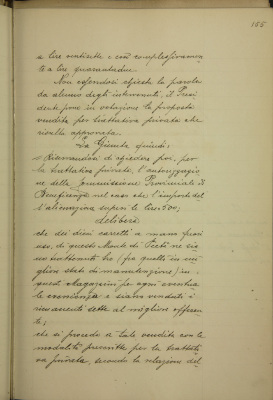 165
a lire ventisette e così complessivamen-
te a lire quarantadue.
Non essendosi chiesta la parola
da alcuno degli intervenuti, il Presi-
dente pone in votazione la proposta
vendita per trattativa privata che
risulta approvata.
La Giunta quindi;
Riservandosi di chiedere poi, per
la trattativa privata, l'autorizzazio-
ne della Commissione Provinciale di
Beneficenza nel caso che l'importo del-
l'alienazione superi le Lire 500;
Delibera
che dei dieci carretti a mano fuori
uso, di questo Monte di Pietà ne sia-
no trattenuti tre (fra quelli in mi-
glior stato di manutenzione) in
questi magazzini per ogni eventua-
le e siano venduti i
rimanenti sette al miglior offeren-
te;
che si proceda a tale vendita con le
modalità prescritte per la trattati-
va privata, secondo la relazione del